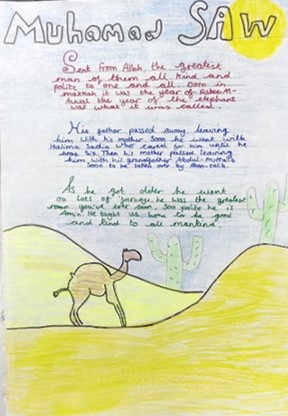 Muhamad SAW
Sent From Allah the greatest
man of them all kind and
polite to one and all. Born in
makkah it was the year of Rabee-ul-
Awal the year of the elephant
was what it was called.
His father passed away leaving
him with his mother Soon he went with
Halima Sadia who cared for him until he
was six. Then his mother passed leaving
him with his grandfather Abdul-muttalib
Soon to be taken over by Abu-talib.
As he got older he went
on lots of jarneys he was the greatest
man you've ever seen Soo polite he is
Amin He taught us how to be good
and kind to all mankind.